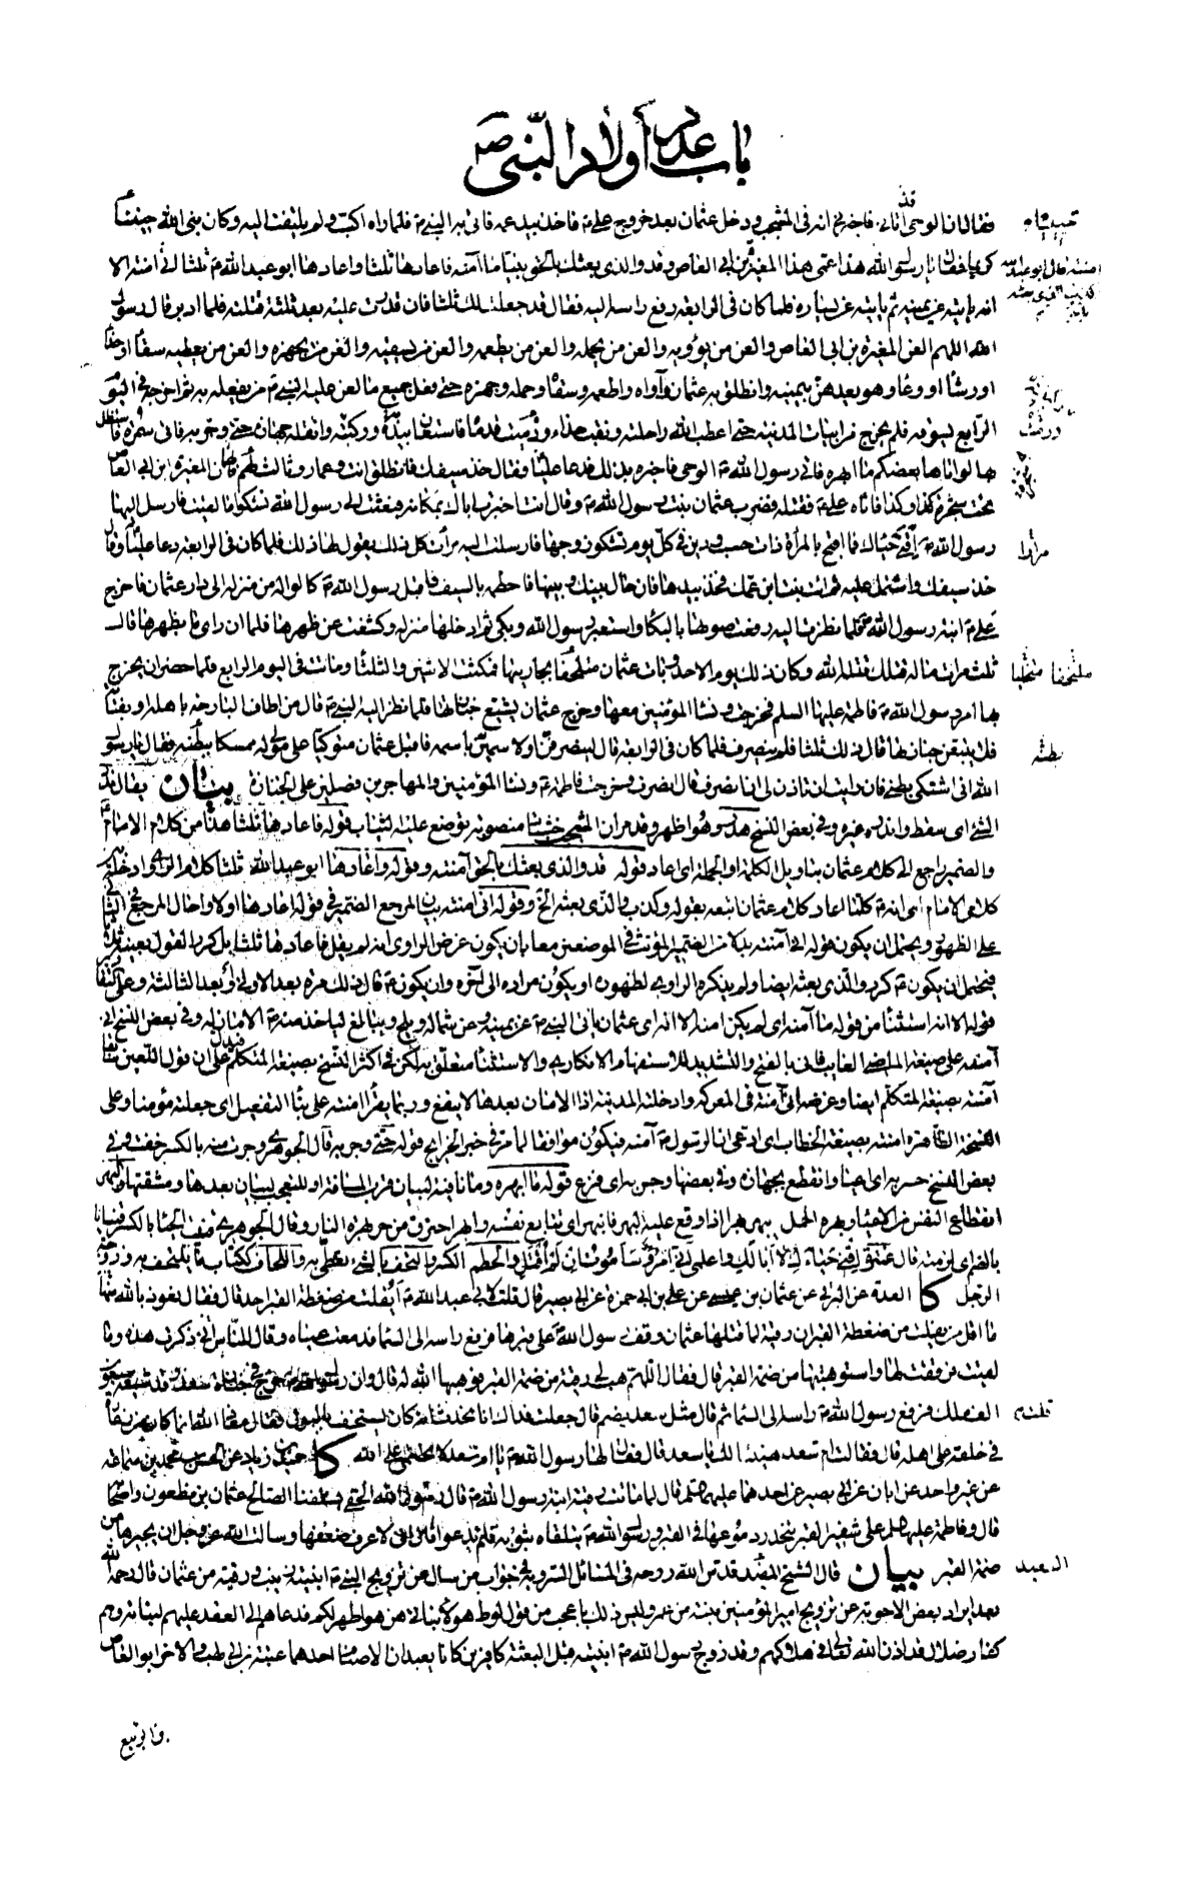 باب عدد أولاد النبي ص
فقال ان الوحى قد أتانى فاخبرنى انه فى المشجب ودخل عثمان بعد خروج على ع فاخذ بيد عمه فاتى به النبى ص فلما راه اكب ولم يلتفت اليه وكان نبى الله حيينا
كريما فقال يا رسول الله هذا عمى هذا المغيرة بن ابى العاص وفد والذى بعثك بالحق نبيا ما آمنه فاعادها ثلثا واعادها ابو عبد الله ع ثلثا انى امنته الا
انه ياتيه عن يمينه ثم ياتيه عن يساره فلما كان فى الرابعة رفع راسه اليه فقال قد جعلت لك ثلثا فان قدرت عليه بعد ثلثة قتلته فلما ادبر قال رسول
الله اللهم العن المغيرة بن ابى العاص والعن من يؤويه والعن من يحمله والعن من يطعمه والعن من يسقيه والعن من يجهزه والعن من يعطيه سقاء او حذاء
او رشاء او وعاء وهو يعدهن بيمينه وانطلق به عثمان وآواه واطعمه وسقاه وحمله وجهزه حتى فعل جميع ما لعن عليه النبى ص من يفعله به ثم اخرجه فى اليوم
الرابع يسوقه فلم يخرج من ابيات المدينة حتى اعطب الله راحلته ونقب حذاه ودميت قدماه فاستعان بيده وركبته واثقله جهازه حتى وجر به فاتى سمرة فاستظل
بها لو اتاها بعضكم ما ابهره فاتى رسول الله ص الوحى فاخبره بذلك فدعا عليا ع فقال خذ سيفك فانطلق انت وعمار وثالث لهم فان المغيرة بن ابى العاص
تحت شجرة كذا وكذا فاتاه على ع فقتله فضرب عثمان بنت رسول الله ص وقال انت اخبرت اباك بمكانه فبعثت الى رسول الله تشكو ما لقيت فارسل اليها
رسول الله ص اقنى حياءك فما اقبح بالمرأة ذات حسب ودين فى كل يوم تشكو زوجها فارسلت اليه مرات كل ذلك يقول لها ذلك فلما كان فى الرابعة دعا عليا وقال
خذ سيفك واشتمل عليه ثم ائت بنت ابن عمك فخذ بيدها فان حال بينك وبينها فاحطمه بالسيف فاقبل رسول الله ص كالواله من منزله الى دار عثمان فاخرج
على ع ابنة رسول الله فلما نظرت اليه رفعت صوتها بالبكاء واستعبر رسول الله وبكى ثم ادخلها منزله وكشفت عن ظهرها فلما ان راى ما بظهرها قال
ثلث مرات ماله قتلك قتله الله وكان ذلك يوم الاحد وبات عثمان ملتحفا بجاريتها فمكثت الاثنين والثلثا وماتت فى اليوم الرابع فلما حضر ان يخرج
بها امر رسول الله ص فاطمة عليها السلم فخرجت ونساء المؤمنين معها وخرج عثمان يشيع جنازتها فلما نظر اليه النبى ص قال من اطاف البارحة باهله او بفتاته
فلا يتبعن جنازتها قال ذلك ثلثا فلم ينصرف فلما كان فى الرابعة قال لينصرفن او لاسمين باسمه فاقبل عثمان متوكيا على مولى له ممسكا ببطنه فقال يا رسول
الله انى اشتكى بطنى فان رايت ان تاذن لى ان انصرف قال انصرف وخرجت فاطمة ع ونساء المؤمنين والمهاجرين فصلين على الجنازة بيان يقال
والضمير راجع الى كلام عثمان بتاويل الكلمة او الجملة اى اعاد قوله قد والذى بعثك بالحق آمنته وقوله واعادها ابو عبد الله ثلثا كلام الراوى ادخله بين
كلامى الامام اى انه ع كلما اعاد كلام عثمان اتبعه بقوله وكذب والذى بعثه بالحق وقوله انى امنته بيان لمرجع الضمير فى قوله اعادها اولا واحال المرجع فى الثانى
على الظهور ويحتمل ان يكون قوله انى آمنته بدلا من الضمير المؤنث فى الموضعين معا بان يكون غرض الراوى انه لم يقل فاعادها ثلثا بل كرر القول بعينه ثلثا
فيحتمل ان يكون ع كرر والذى بعثه ايضا ولم يذكره الراوى لظهوره او يكون مراده الى آخره وان يكون ع قال ذلك مرة بعد الاولى او بعد الثالثة
قوله الا انه استثناء من قوله ما آمنه اى لم يكن امنه الا انه اى عثمان ياتى النبى ص عن يمينه وعن شماله ويلح ويبالغ لياخذ منه ع الامان له وفى بعض النسخ
آمنته بصيغة المتكلم ايضا وغرضه انى آمنته فى المعركة وادخلته المدينة اذ الامان بعدها لا ينفع وربما يقرأ امنته على بناء التفعيل اى جعلته مؤمنا وعلى
النسخة الظاهرة امنته بصيغة الخطاب اى ادعى ان الرسول ص آمنه فيكون موافقا لما مر فى خبر الخرايج قوله حتى وجر به قال الجوهرى وجرت منه بالكسر خفت وفى
بعض النسخ حسر به اى اعيا وانقطع بجهازه وفى بعضها وجس به اى فزع قوله ما ابهره وما نافية لبيان قرب المسافة او للتعجب لبيان بعدها ومشقتها والبهر
انقطاع النفس من الاعياء وبهره الحمل يبهر بهرا اذا وقع عليه البهر فانبهر اى تتابع نفسه وابهر احترق من حر بهرة النار وقال الجوهرى قنيت الحياء بالكسر قنيانا
بالضم اى لزمته قال عنترة اقنى حياءك لا ابا لك واعلمى انى امرؤ سأموت ان لم أقتل والحطم الكسر والتحف بالشىء تغطى به واللحاف ككتاب ما يلتحف به وزوجة
الرجل كا العدة عن البرقى عن عثمان بن عيسى عن على بن ابى حمزة عن ابى بصير قال قلت لابى عبد الله ع أيفلت من ضغطة القبر احد قال فقال نعوذ بالله منها
ما اقل من يفلت من ضغطة القبر ان رقية لما قتلها عثمان وقف رسول الله ص على قبرها فرفع راسه الى السماء فدمعت عيناه وقال للناس انى ذكرت هذه وما
لقيت فرققت لها واستوهبتها من ضمة القبر قال فقال اللهم هب لى رقية من ضمة القبر فوهبها الله له قال وان رسول الله ص خرج فى جنازة سعد وقد شيعه سبعون
الف ملك فرفع رسول الله ص راسه الى السماء ثم قال مثل سعد يضم قال جعلت فداك انا نحدث انه كان يستخف بالبول فقال معاذ الله انما كان من زعارة
فى خلقه على اهله قال فقالت ام سعد هنيئا لك يا سعد قال فقال لها رسول الله ص يا ام سعد لا تحتمى على الله كا حميد بن زياد عن الحسن بن محمد بن سماعة
عن غير واحد عن ابان عن ابى بصير عن احدهما عليهما السلم قال لما ماتت رقية ابنة رسول الله ص قال رسول الله الحقى بسلفنا الصالح عثمان بن مظعون واصحابه
قال وفاطمة عليها السلم على شفير القبر تنحدر دموعها فى القبر ورسول الله ص يتلقاه بثوبه قائم يدعو قال انى لاعرف ضعفها وسالت الله عز وجل ان يجيرها من
ضمة القبر بيان قال الشيخ المفيد قدس الله روحه فى المسائل السروية فى جواب من سال عن تزويج النبى ص ابنتيه زينب ورقية من عثمان قال رحمه الله
بعد ايراد بعض الاجوبة عن تزويج امير المؤمنين بنته من عمر وليس ذلك باعجب من قول لوط هؤلاء بناتى هن اطهر لكم فدعاهم الى العقد عليهم لبناته وهم
كفار ضلال قد اذن الله تعالى فى هلاكهم وقد زوج رسول الله ص ابنتيه قبل البعثة كافرين كانا يعبدان الاصنام احدهما عتبة بن ابى لهب والاخر ابو العاص
مرارا
ملتحفا متخليا
بطنه